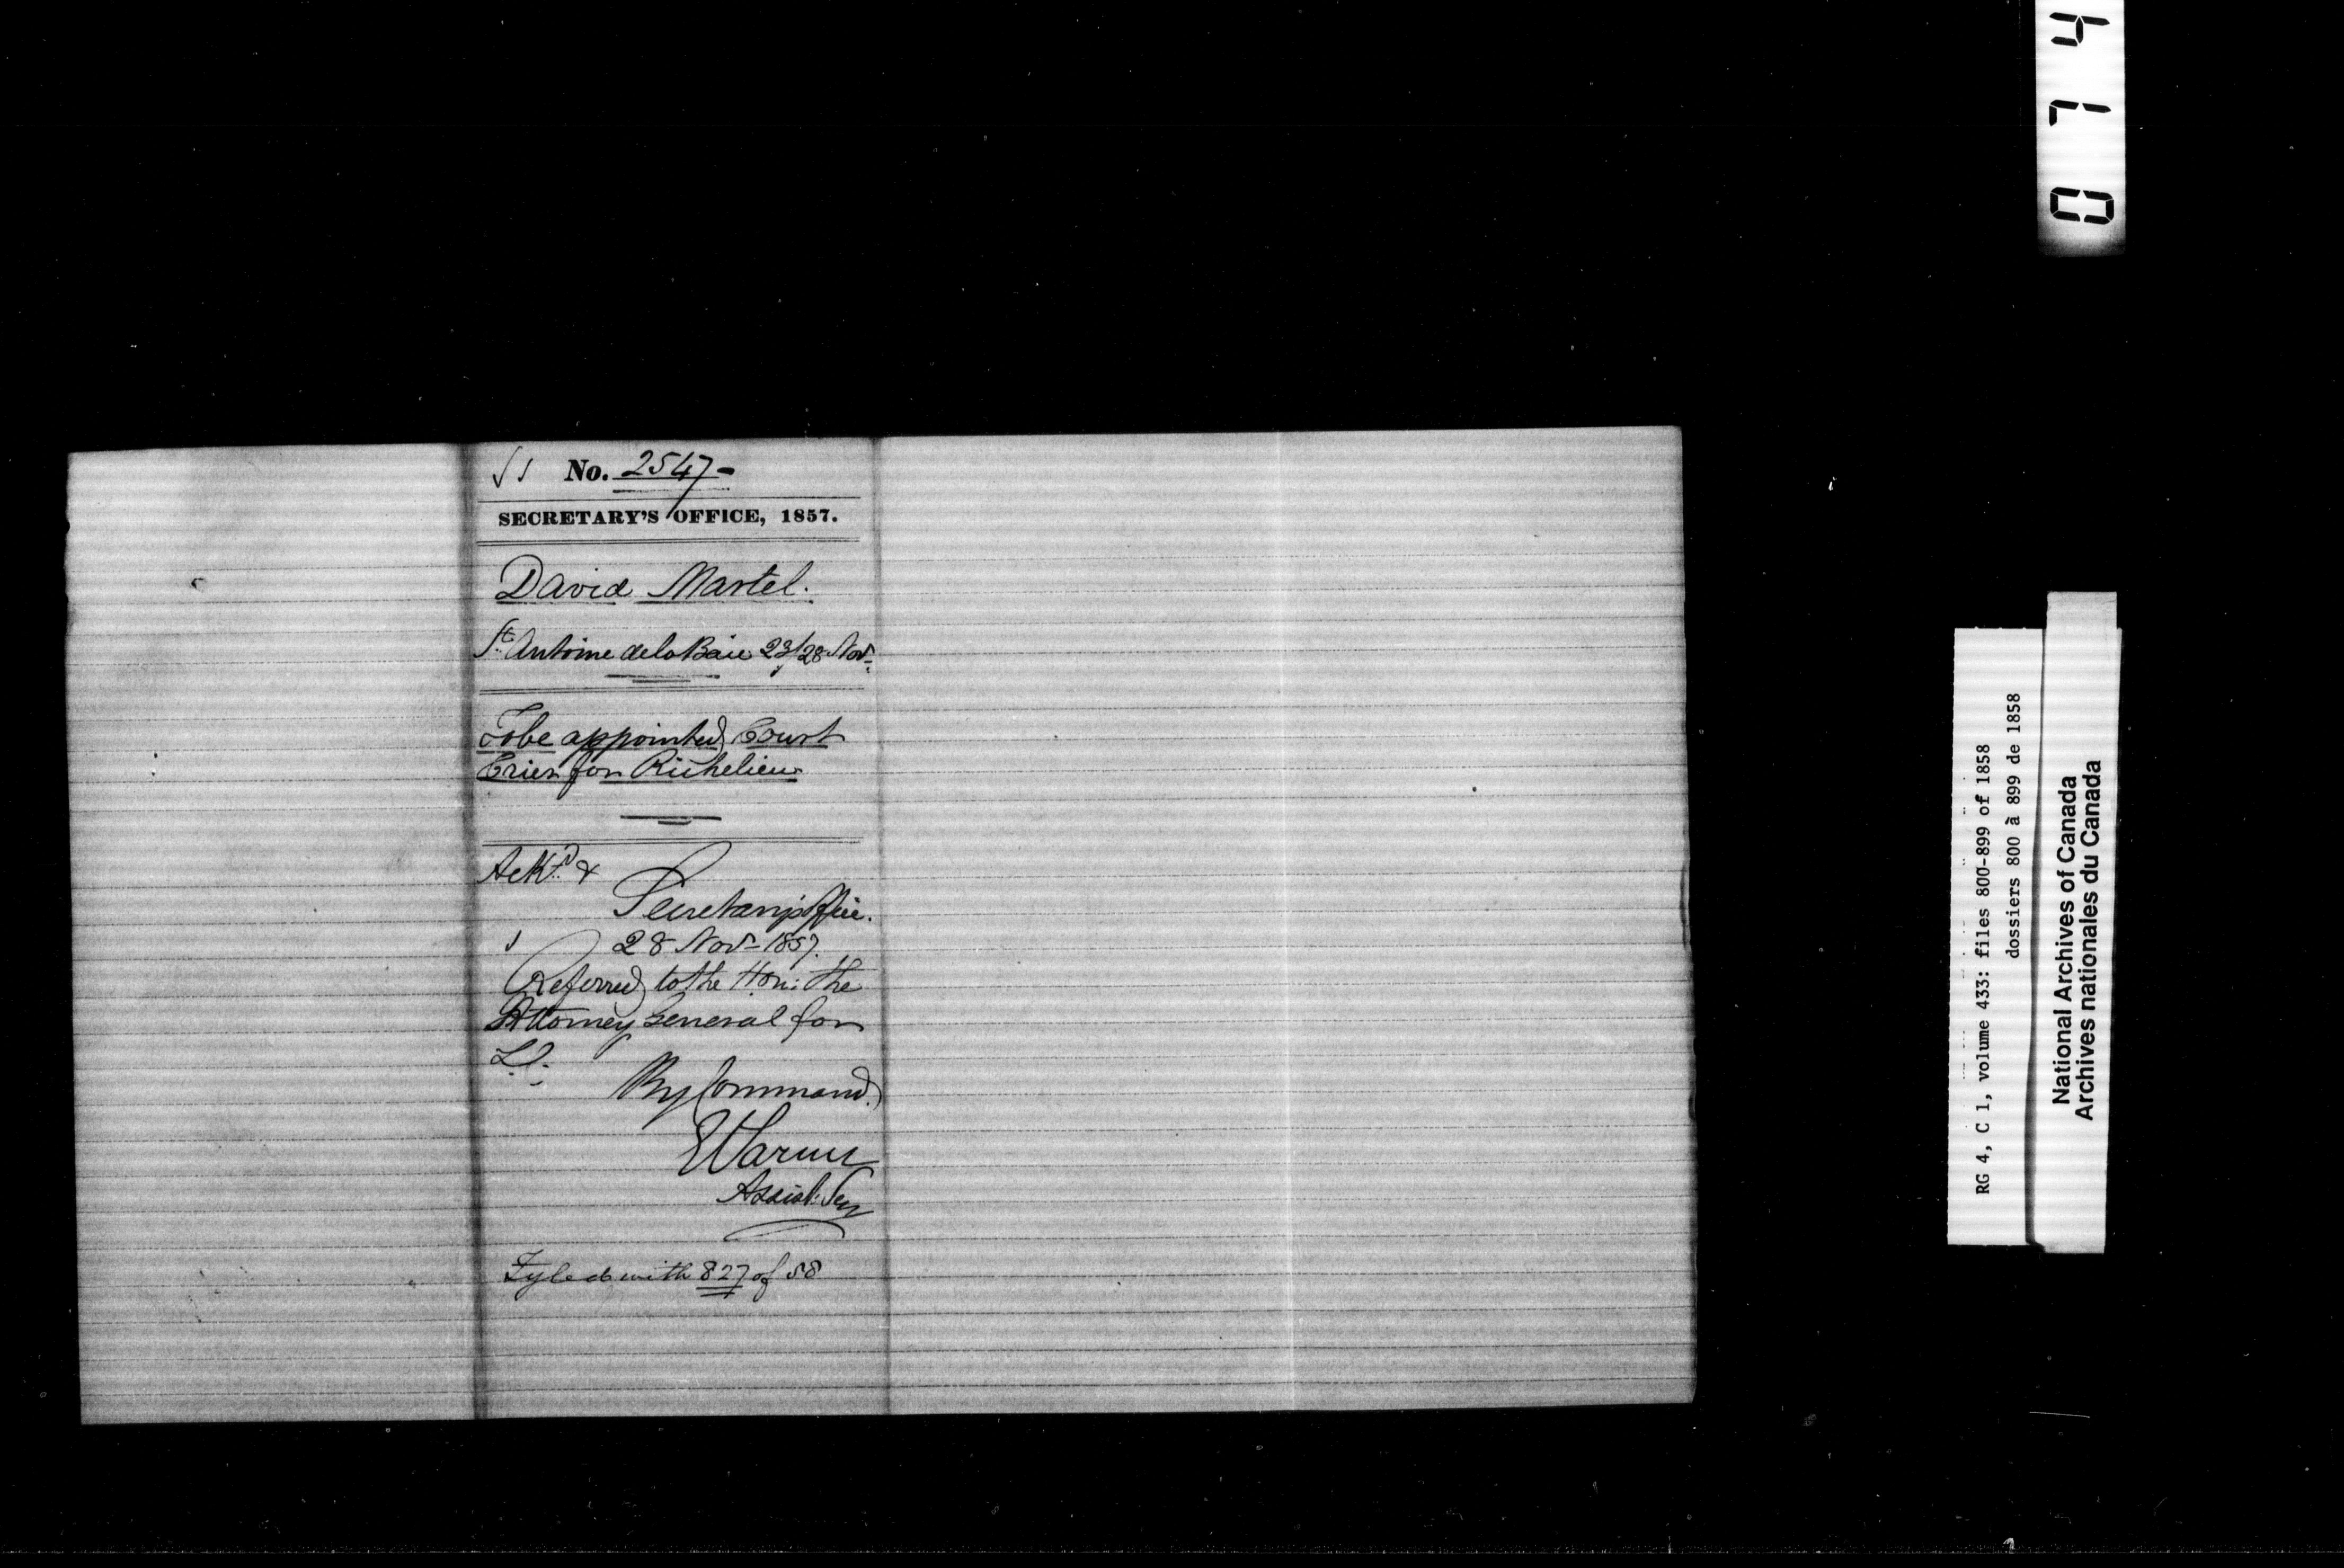 No. 2547-
SECRETARY'S OFFICE, 1857.
David Martel.
St. Antoine de la Baie 23/28 Nov.
To be appointed Court
Crier for Richelieu
Ackd. &
Secretary's Office.
28 Nov- 1857.
Referred to the Hon: the
Attorney General for
L.C.
By Command.
Assist: Secy
Fyled with 827 of 58
0 7 4
RG 4, C 1, volume 433: files 800-899 of 1858
dossiers 800 à 899 de 1858
National Archives of Canada
Archives nationales du Canada